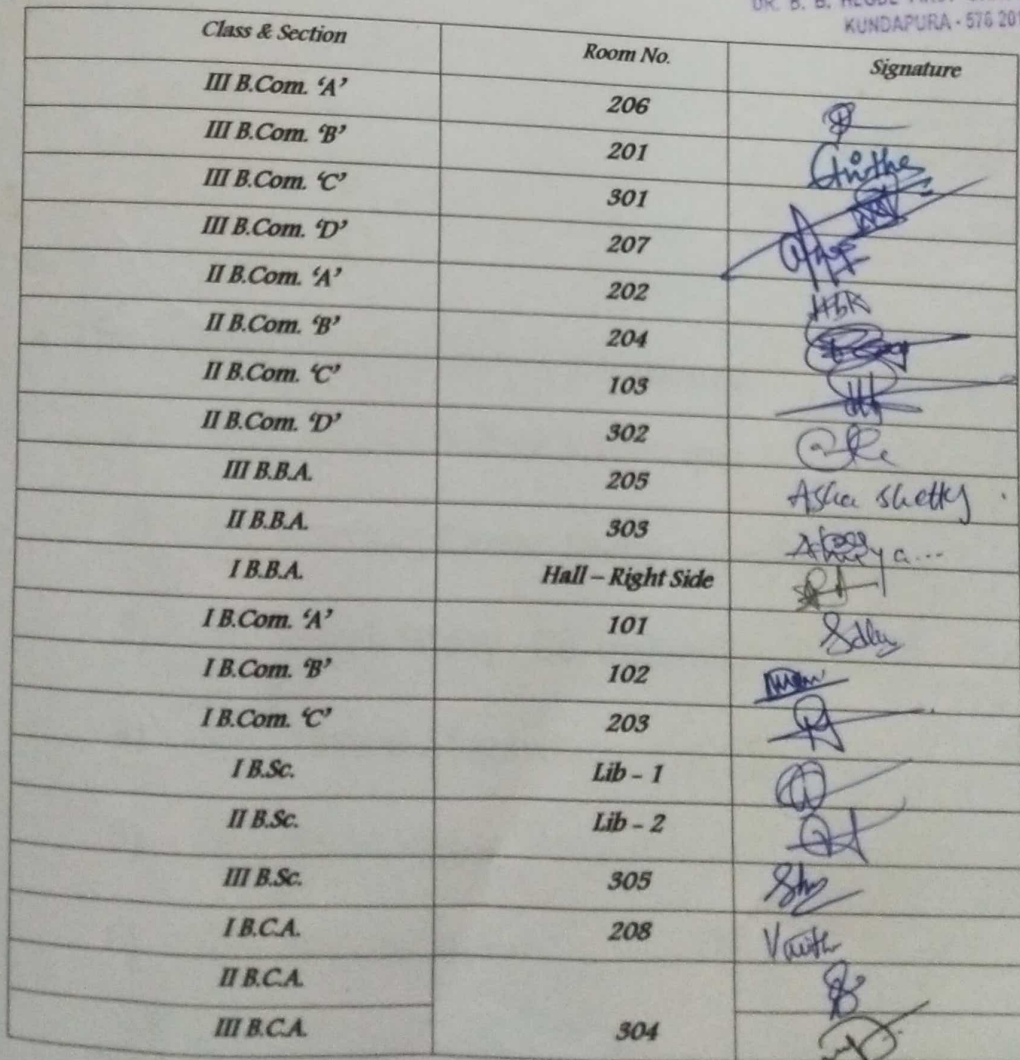 DR. B. B. HEGDE FIRST
KUNDAPURA - 576 201
Class & Section Room No. Signature
III B.Com. ‘A’ 206
III B.Com. ‘B’ 201
III B.Com. ‘C’ 301
III B.Com. ‘D’ 207
II B.Com. ‘A’ 202
II B.Com. ‘B’ 204
II B.Com. ‘C’ 103
II B.Com. ‘D’ 302
III B.B.A. 205 Asha Shetty
II B.B.A. 303
I B.B.A. Hall – Right Side
I B.Com. ‘A’ 101
I B.Com. ‘B’ 102
I B.Com. ‘C’ 203
I B.Sc. Lib - 1
II B.Sc. Lib - 2
III B.Sc. 305
I B.C.A. 208
II B.C.A.
III B.C.A. 304